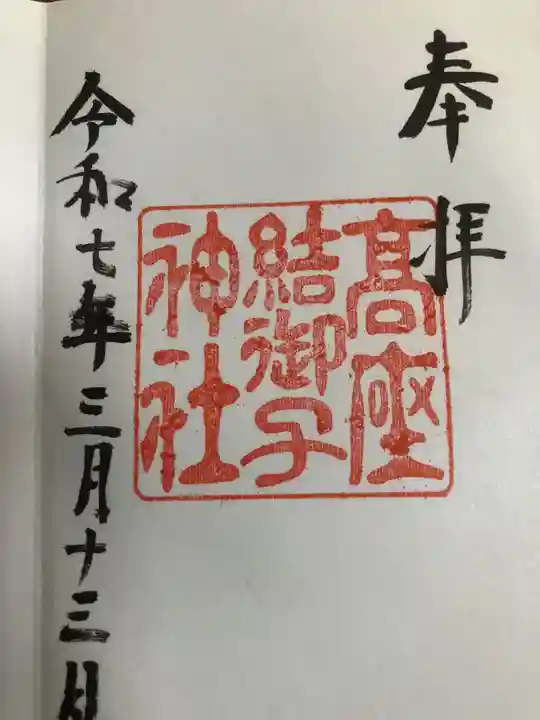 奉拝
高座
結御子
神社
令和七年三月十三日